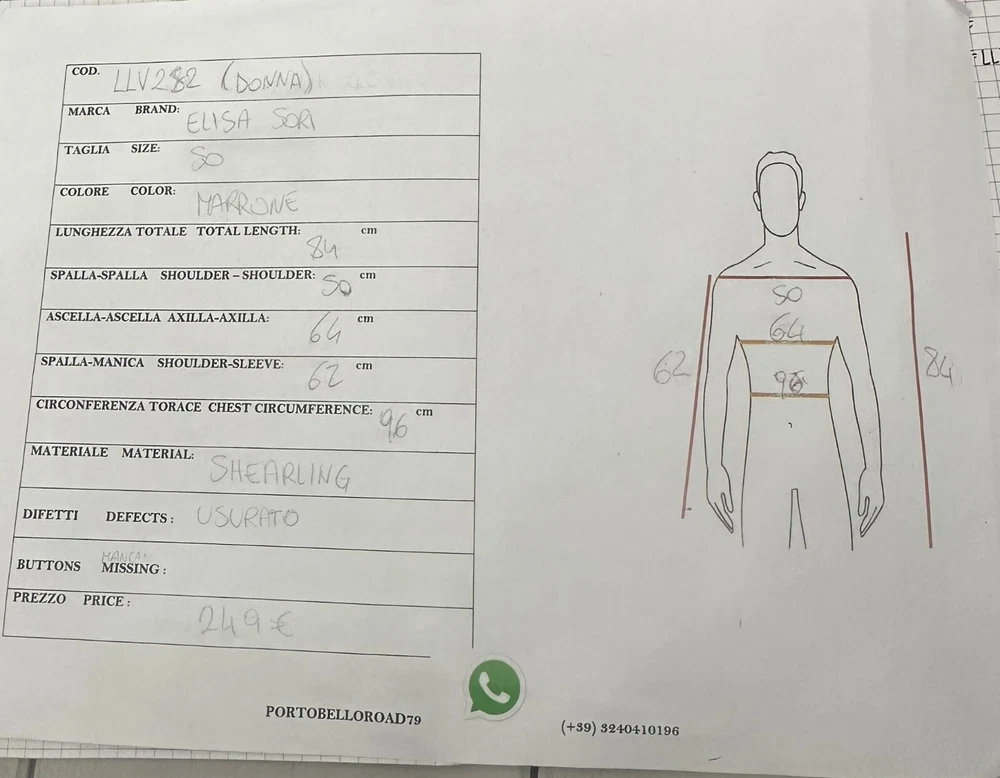 COD. LLV282 (DONNA)
MARCA BRAND: ELISA SORI
TAGLIA SIZE: 50
COLORE COLOR: MARRONE
LUNGHEZZA TOTALE TOTAL LENGTH: 84 cm
SPALLA-SPALLA SHOULDER – SHOULDER: 50 cm
ASCELLA-ASCELLA AXILLA-AXILLA: 64 cm
SPALLA-MANICA SHOULDER-SLEEVE: 62 cm
CIRCONFERENZA TORACE CHEST CIRCUMFERENCE: 96 cm
MATERIALE MATERIAL: SHEARLING
DIFETTI DEFECTS: USURATO
BUTTONS MISSING:
PREZZO PRICE: 249 €
50
64
62
96
84
PORTOBELLOROAD79
(+39) 3240410196